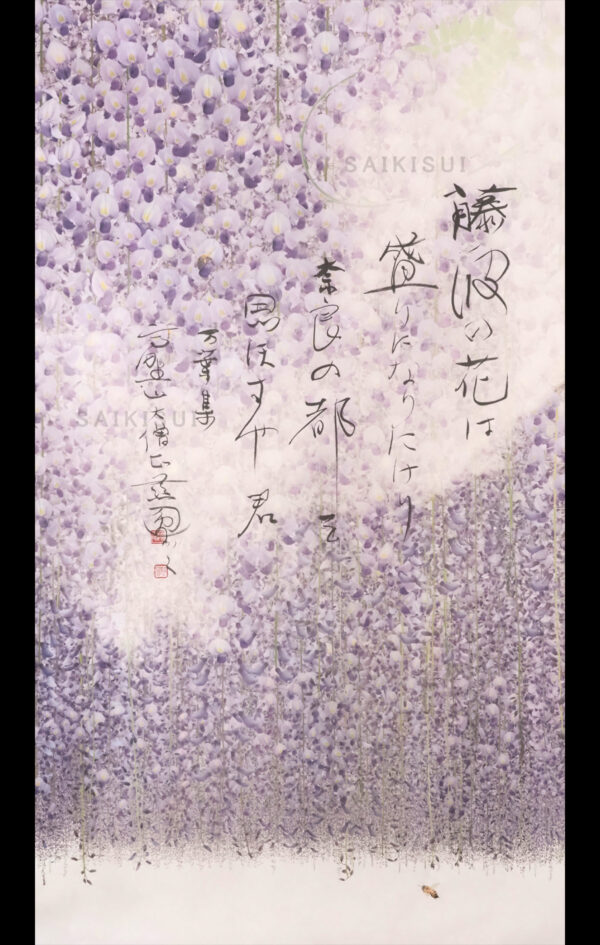 藤波の花は
盛りになりにけり
奈良の都を
思ほすや君
万葉集
高野山大僧正
SAIKISUI
SAIKISUI